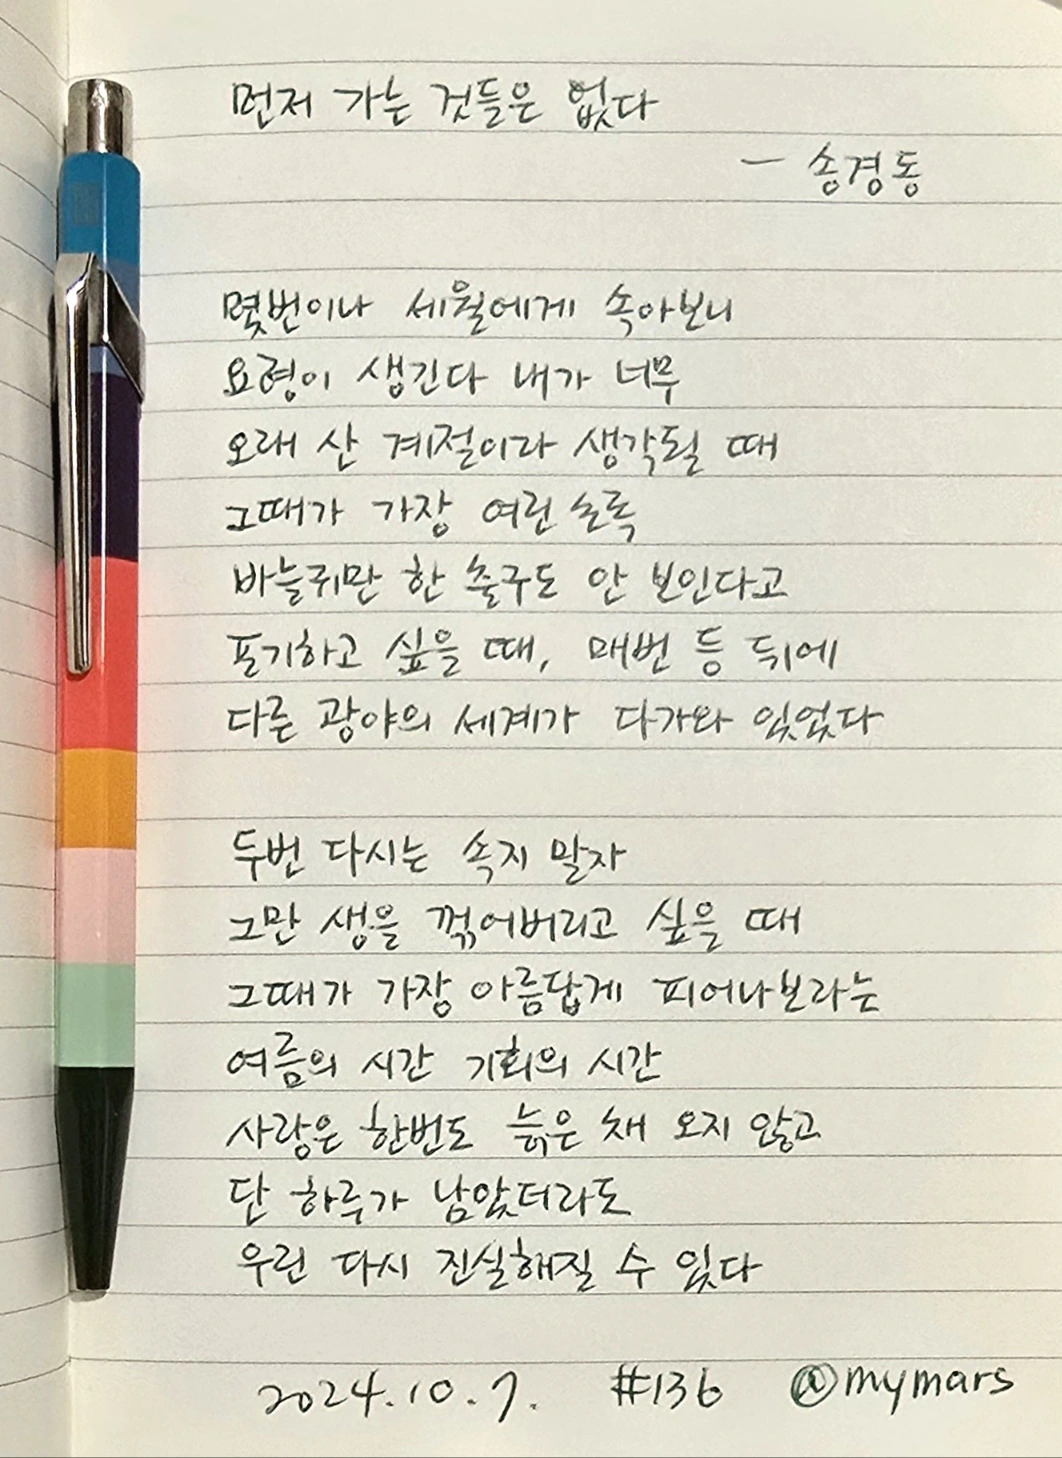 먼저 가는 것들은 없다
- 송경동
몇번이나 세월에게 속아보니
요령이 생긴다 내가 너무
오래 산 계절이라 생각될 때
그때가 가장 여린 초록
바늘귀만 한 출구도 안 보인다고
포기하고 싶을 때, 매번 등 뒤에
다른 광야의 세계가 다가와 있었다
두번 다시는 속지 말자
그만 생을 꺾어버리고 싶을 때
그때가 가장 아름답게 피어나보라는
여름의 시간 기회의 시간
사랑은 한번도 늙은 채 오지 않고
단 하루가 남았더라도
우린 다시 진실해질 수 있다
2024.10.7. #136 @mymars